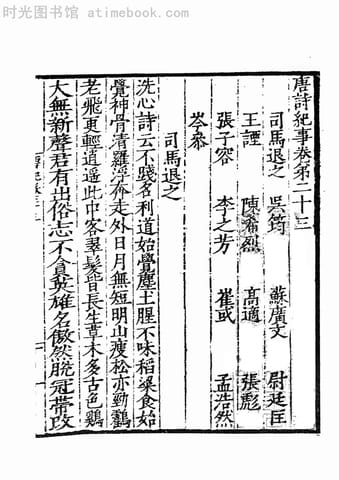 时光图书馆 atimebook.com
唐詩紀事卷第二十三
司馬退之 吳筠 蘇廣文 尉廷匡
王諲 陳希烈 高適 張彪
張子容 李之芳 崔或 孟浩然
岑參
司馬退之
洗心詩云不踐名利道始覺塵土腥不味稻粱食始
覺神骨清羅浮奔走外日月無短明山瘦松亦勁鶴
老飛更輕逍遥此中客翠髮皆長生草木多古色鷄
大無新聲君有出俗志不貪英雄名傲然脫冠帶改